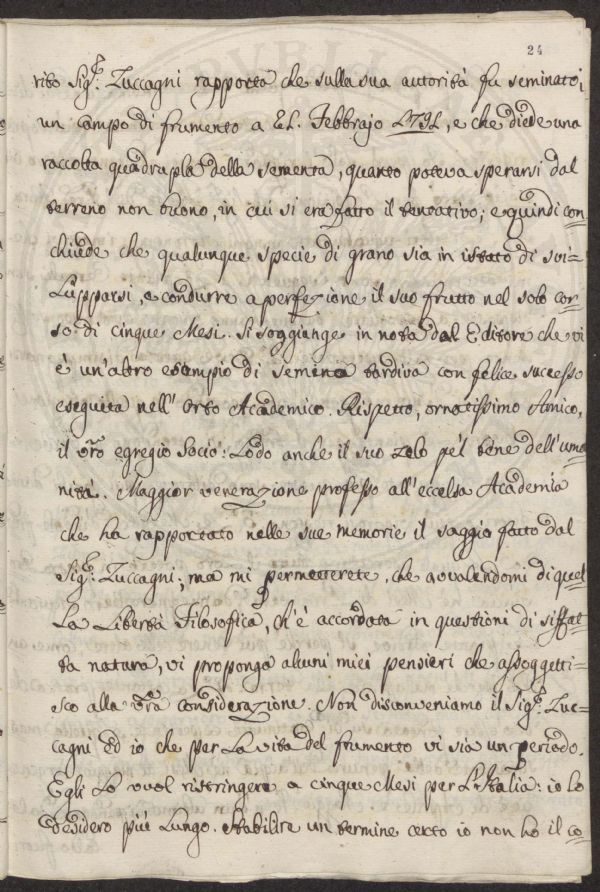 24
rito Sig.r Zuccagni rapporta che sulla sua autorità fu seminato
un campo di frumento a 21. Febbrajo 1791, e che diede una
raccolta quadrupla della sementa, quanto poteva sperarsi dal
terreno non buono, in cui si era fatto il tentativo; e quindi con=
chiude che qualunque specie di grano sia in istato di svi=
lupparsi, e condurre a perfezione il suo frutto nel solo cor=
so di cinque Mesi. Si soggiunge in nota dal Editore che vi
è un'altro esempio di sementa tardiva con felice successo
eseguita nell'Orto Academico. Rispetto, ornatissimo Amico,
il vro egregio Socio: Lodo anche il suo zelo pel bene dell'uma=
nità. Maggior venerazione professo all'eccelsa Academia
che ha rapportato nelle sue memorie il saggio fatto dal
Sig.r Zuccagni; ma mi permetterete, che avvalendomi di quel=
la Libertà Filosofica, ch'è accordata in questioni di siffat=
ta natura, vi proponga alcuni miei pensieri che assoggetti=
sco alla vra considerazione. Non disconveniamo il Sig.r Zuc=
cagni ed io che per la vita del frumento vi sia un periodo.
Egli lo vuol ristringere a cinque Mesi per l'Italia: io lo
desidero più lungo. Stabilire un termine certo io non ho il co=